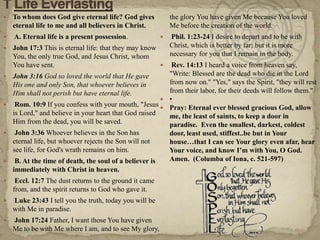 T Life Everlasting
To whom does God give eternal life? God gives
eternal life to me and all believers in Christ.
A. Eternal life is a present possession.
John 17:3 This is eternal life: that they may know
You, the only true God, and Jesus Christ, whom
You have sent.
John 3:16 God so loved the world that He gave
His one and only Son, that whoever believes in
Him shall not perish but have eternal life.
Rom. 10:9 If you confess with your mouth, "Jesus
is Lord," and believe in your heart that God raised
Him from the dead, you will be saved.
John 3:36 Whoever believes in the Son has
eternal life, but whoever rejects the Son will not
see life, for God's wrath remains on him.
B. At the time of death, the soul of a believer is
immediately with Christ in heaven.
Eccl. 12:7 The dust returns to the ground it came
from, and the spirit returns to God who gave it.
Luke 23:43 I tell you the truth, today you will be
with Me in paradise.
John 17:24 Father, I want those You have given
Me to be with Me where I am, and to see My glory,
the glory You have given Me because You loved
Me before the creation of the world.
Phil. 1:23-24 I desire to depart and to be with
Christ, which is better by far; but it is more
necessary for you that I remain in the body.
Rev. 14:13 I heard a voice from heaven say,
"Write: Blessed are the dead who die in the Lord
from now on." "Yes," says the Spirit, "they will rest
from their labor, for their deeds will follow them."
Pray: Eternal ever blessed gracious God, allow
me, the least of saints, to keep a door in
paradise. Even the smallest, darkest, coldest
door, least used, stiffest..be but in Your
house…that I can see Your glory even afar, hear
Your voice, and know I'm with You, O God.
Amen. (Columba of Iona, c. 521-597)
God so loved the world,
that He Gave His
Only begotten
Son, that whosoever believes
in Him Shall not
Perish, but have
Everlasting
Life